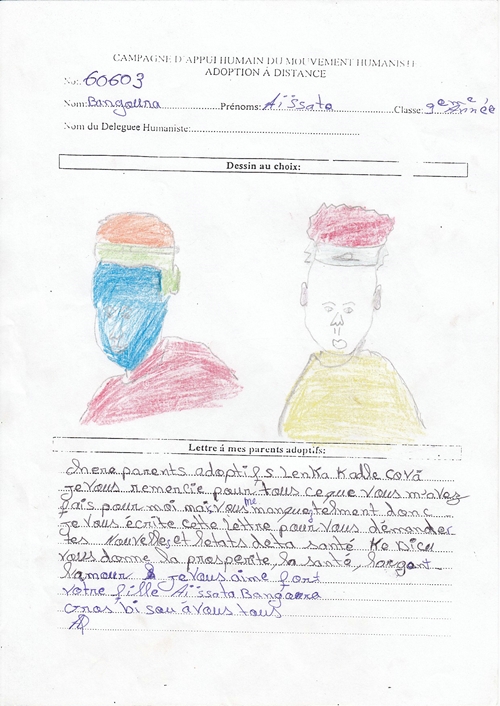 CAMPAGNE D'APPUI HUMAIN DU MOUVEMENT HUMANISTE
ADOPTION À DISTANCE
No:.60603
Nom:Bangoura Prénoms: Aïssata Classe: 9eme Année
Nom du Deleguee Humaniste:
Dessin au choix:
Lettre à mes parents adoptifs:
chere parents adoptifs Lenka Kadle cová
je vous remencie pour tous ce que vous m'avez
fais pour moi mais vous me manquez telment donc
je vous écrite cette lettre pour vous démander
les nouvelles et letats de ta santé Ke Dieu
vous donne la prosperite, la santé, largent
lamour je vous aime fort
votre fille Aïssata Bangoura
Gros bisou à vous tous